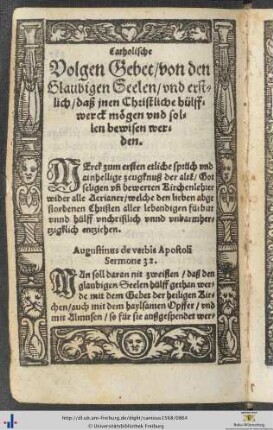 Catholische
Volgen Gebet/von den
Glaubigen Seelen/vnd erst-
lich/daß jnen Christliche hülff-
werck mögen vnd sol-
len bewisen wer-
den.
MErck zum ersten etliche sprüch vnd
ainhellige zeugknuß der alte/ Got
seligen vñ bewerten Kirchenlehrer
wider alle Aerianer/welche den lieben abge
storbenen Christen aller lebendigen fürbit
vnnd hülff vnchristlich vnnd vnbarmher-
tzigklich entziehen.
Augustinus de verbis Apostoli
Sermone 32.
MAn soll daran nit zweiflen/ daß den
glaubigen Seelen hülff gethan wer-
de mit dem Gebet der heiligen Kir-
chen/auch mit dem haylsamen Opffer/ vnd
mit Almusen/ so für sie außgespendet wer-
http://dl.ub.uni-freiburg.de/diglit/canisius1568/0864
© Universitätsbibliothek Freiburg